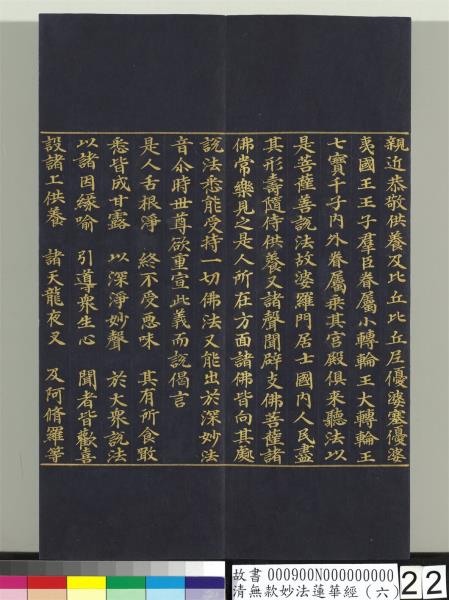 親近恭敬供養及比丘比丘尼優婆塞優婆
夷國王王子羣臣眷屬小轉輪王大轉輪王
七寶千子內外眷屬乘其宮殿俱來聽法以
是菩薩善說法故婆羅門居士國內人民盡
其形壽隨侍供養又諸聲聞辟支佛菩薩諸
佛常樂見之是人所在方面諸佛皆向其處
說法悉能受持一切佛法又能出於深妙法
音尒時世尊欲重宣此義而說偈言
是人舌根淨 終不受惡味 其有所食噉
悉皆成甘露 以深淨妙聲 於大衆說法
以諸因緣喻 引導衆生心 聞者皆歡喜
設諸上供養 諸天龍夜叉 及阿脩羅等
故書 000900N000000000
清無款妙法蓮華經（六）
22